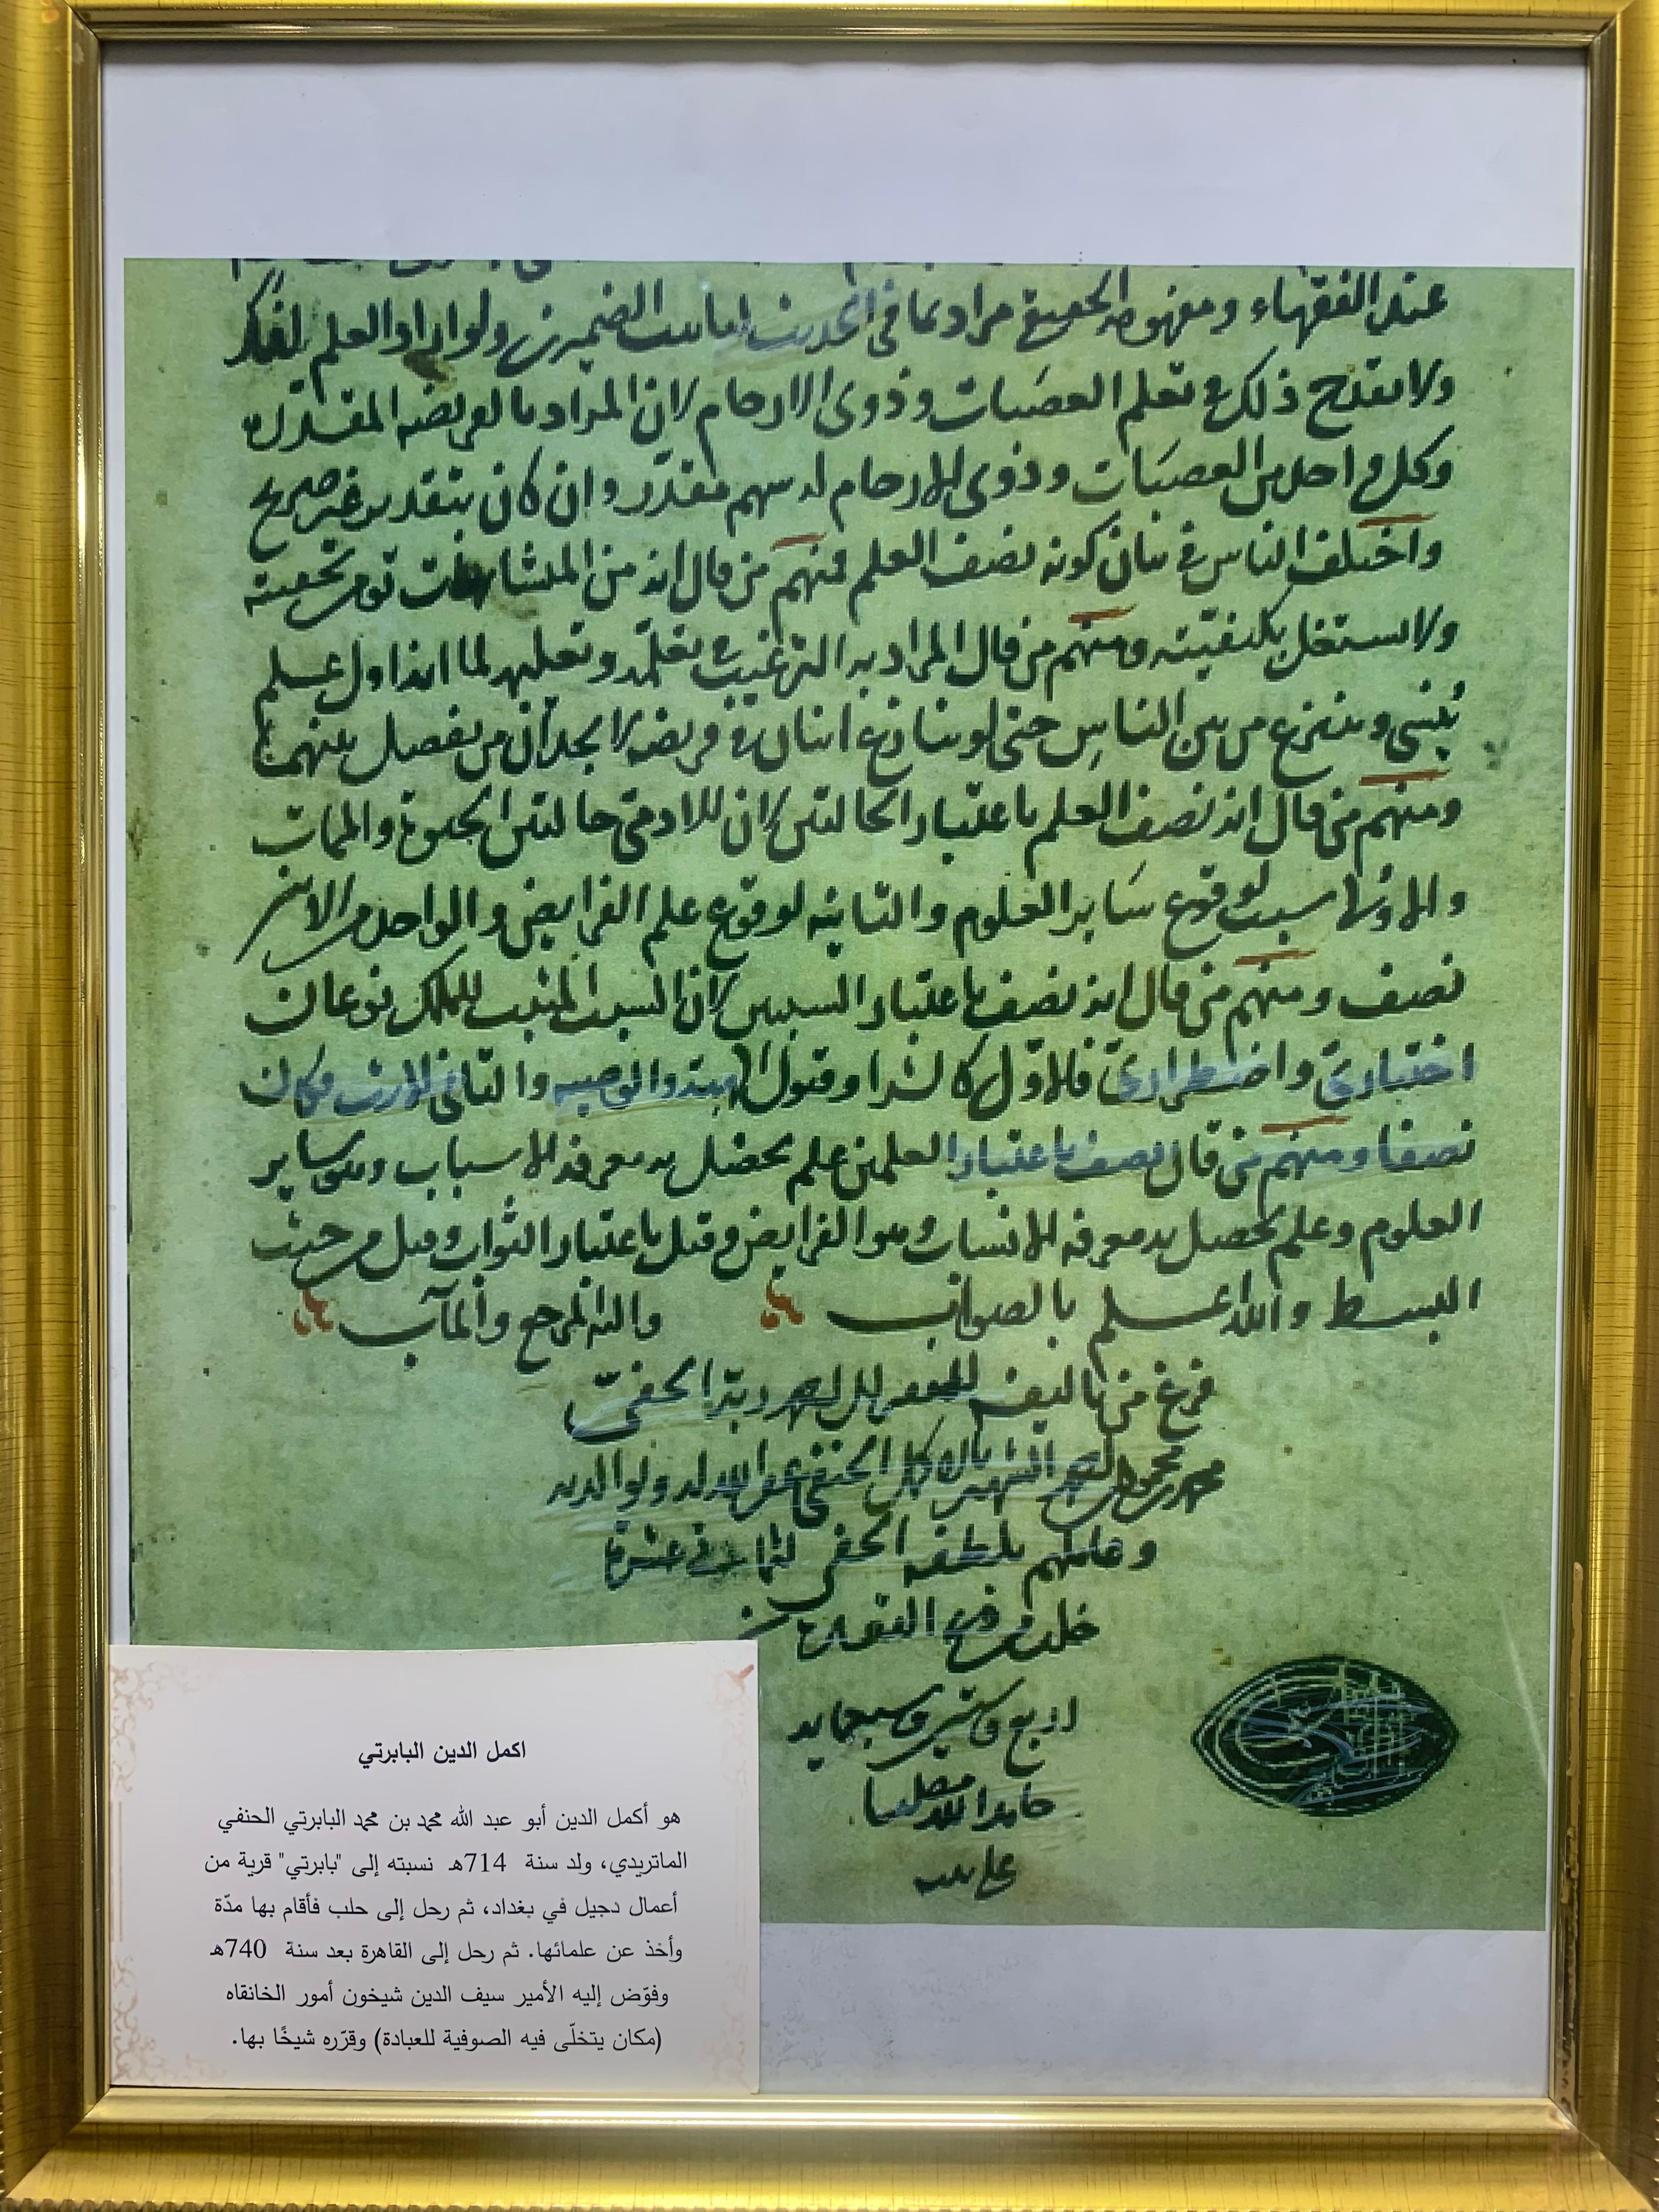 عند الفقهاء ومفهومه الحقيقة مراد بما في الحديث الضميرين ولو اراد العلم لذكر
ولا يقدح ذلك في تعلم العصَبات وذوى الارحام لان المراد بالفريضه المقدره
وكل واحد من العصبَات وذوى الارحام له سهم مقدر وان كان بتقدير غير صريح
واختلف الناس في بيان كونه نصف العلم فمنهم من قال انه من المتشابهات نومن بحقيته
ولا نشتغل بكيفيته ومنهم من قال المراد به الترغيب في تعلمه وتعليمه لما انه اول علم
يُنسى وينتزع من بين الناسِ حتى لو تنازع اثنان في فريضه لا يجدان من يفصل بينهما
ومنهم من قال انه نصف العلم باعتبار الحالتين لان للادمى حالتين الحيوة والممات
والاولى سبب لوقوع سَاير العلوم والثانيه لوقوع علم الفرايض والواحد من الاثنين
نصف ومنهم من قال انه نصف باعتبار السببين لان السبب المثبت للملك نوعان
اختيارى واضطرارى فالاول كالشرا وقبول الهبة والوصيه والثانى الارث فكان
نصفا ومنهم من قال نصف باعتبار العلمين علم يحصل به معرفة الاسباب وهو ساير
العلوم وعلم يحصل به معرفه الانساب وهو الفرايض وقيل باعتبار الثواب وقيل من حيث
البسط والله اعلم بالصواب واليه المرجع والمآب
فرغ من تاليفه ربه الحفيّ
محمد بن محمود بن احمد الشهير بالاكمل الحنفى عفا الله له ولوالديه
وعاملهم بلطفه الحفى لثمانى عشرة
خلت من ذى القعدة
اربع وستين وسبعمايه
حامدا لله مصليا
على نبيه
اكمل الدين البابرتي
هو أكمل الدين أبو عبد الله محمد بن محمد البابرتي الحنفي
الماتريدي، ولد سنة 714هـ نسبته إلى "بابرتي" قرية من
أعمال دجيل في بغداد، ثم رحل إلى حلب فأقام بها مدّة
وأخذ عن علمائها. ثم رحل إلى القاهرة بعد سنة 740هـ
وفوّض إليه الأمير سيف الدين شيخون أمور الخانقاه
(مكان يتخلّى فيه الصوفية للعبادة) وقرّره شيخًا بها.